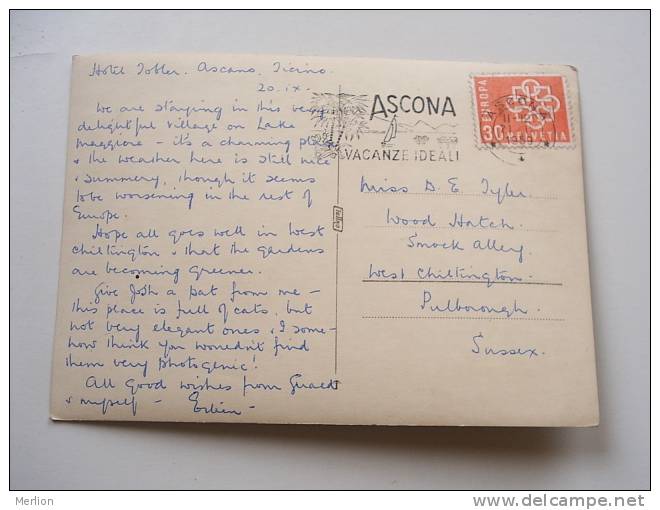 Hotel Tobler. Ascano. Ticino.
20. ix.
We are staying in this very
delightful village on Lake
Maggiore – it's a charming place
& the weather here is still nice
& summery, though it seems
to be worsening in the rest of
Europe.
Hope all goes well in West
Chiltington & that the gardens
are becoming greener.
Give Josh a pat from me –
this place is full of cats, but
not very elegant ones & I some-
how think you wouldn't find
them very photogenic!
All good wishes from Gerard
& myself –
ASCONA
VACANZE IDEALI
EUROPA
30 HELVETIA
Miss D. E. Tyler.
Wood Hatch.
Smock Alley.
West Chiltington.
Pulborough.
Sussex.
Merlion
www.delcampe.net